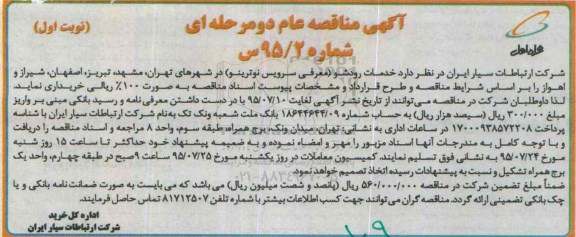 آگهی مناقصه عام دومرحله ای
(نوبت اول)
شماره ۹۵/۲س
همراه اول
شرکت ارتباطات سیار ایران در نظر دارد خدمات رودشو (معرفی سرویس نوترینو) در شهرهای تهران، مشهد، تبریز، اصفهان، شیراز و
اهواز را بر اساس شرایط مناقصه و طرح قرارداد و مشخصات پیوست اسناد مناقصه به صورت ۱۰۰٪ ریالی خریداری نماید.
لذا داوطلبان شرکت در مناقصه می‌توانند از تاریخ نشر آگهی لغایت ۹۵/۰۷/۱۰ با در دست داشتن معرفی نامه و رسید بانکی مبنی بر واریز
مبلغ ۳۰۰/۰۰۰ ریال (سیصد هزار ریال) به حساب شماره ۱۸۶۴۴۶۴۴/۰۹ بانک ملت شعبه ونک تک به‌نام شرکت ارتباطات سیار ایران با شناسه
پرداخت ۱۷۰۰۰۹۳۸۵۷۲۲۰۸ در ساعات اداری به نشانی تهران میدان ونک، برج همراه، طبقه سوم، واحد ۸ مراجعه و اسناد مناقصه را دریافت
و با توجه کامل به مندرجات آنها اسناد مزبور را مهر و امضاء نموده و به ضمیمه پیشنهاد خود حداکثر تا ساعت ۱۵ روز شنبه
مورخ ۹۵/۰۷/۲۴ به نشانی فوق تسلیم نمایند. کمیسیون معاملات در روز یکشنبه مورخ ۹۵/۰۷/۲۵ ساعت ۹ صبح در طبقه چهارم، واحد یک
برج همراه تشکیل و نسبت به پیشنهادات رسیده اتخاذ تصمیم خواهد نمود.
ضمناً مبلغ تضمین شرکت در مناقصه ۵۶۰/۰۰۰/۰۰۰ ریال (پانصد و شصت میلیون ریال) می‌باشد که می بایست به صورت ضمانت نامه بانکی و یا
چک بانکی تضمینی ارائه گردد. مناقصه گران می‌توانند جهت کسب اطلاعات بیشتر با شماره تلفن ۸۱۷۱۲۵۰۷ تماس حاصل فرمایند.
اداره کل خرید
شرکت ارتباطات سیار ایران